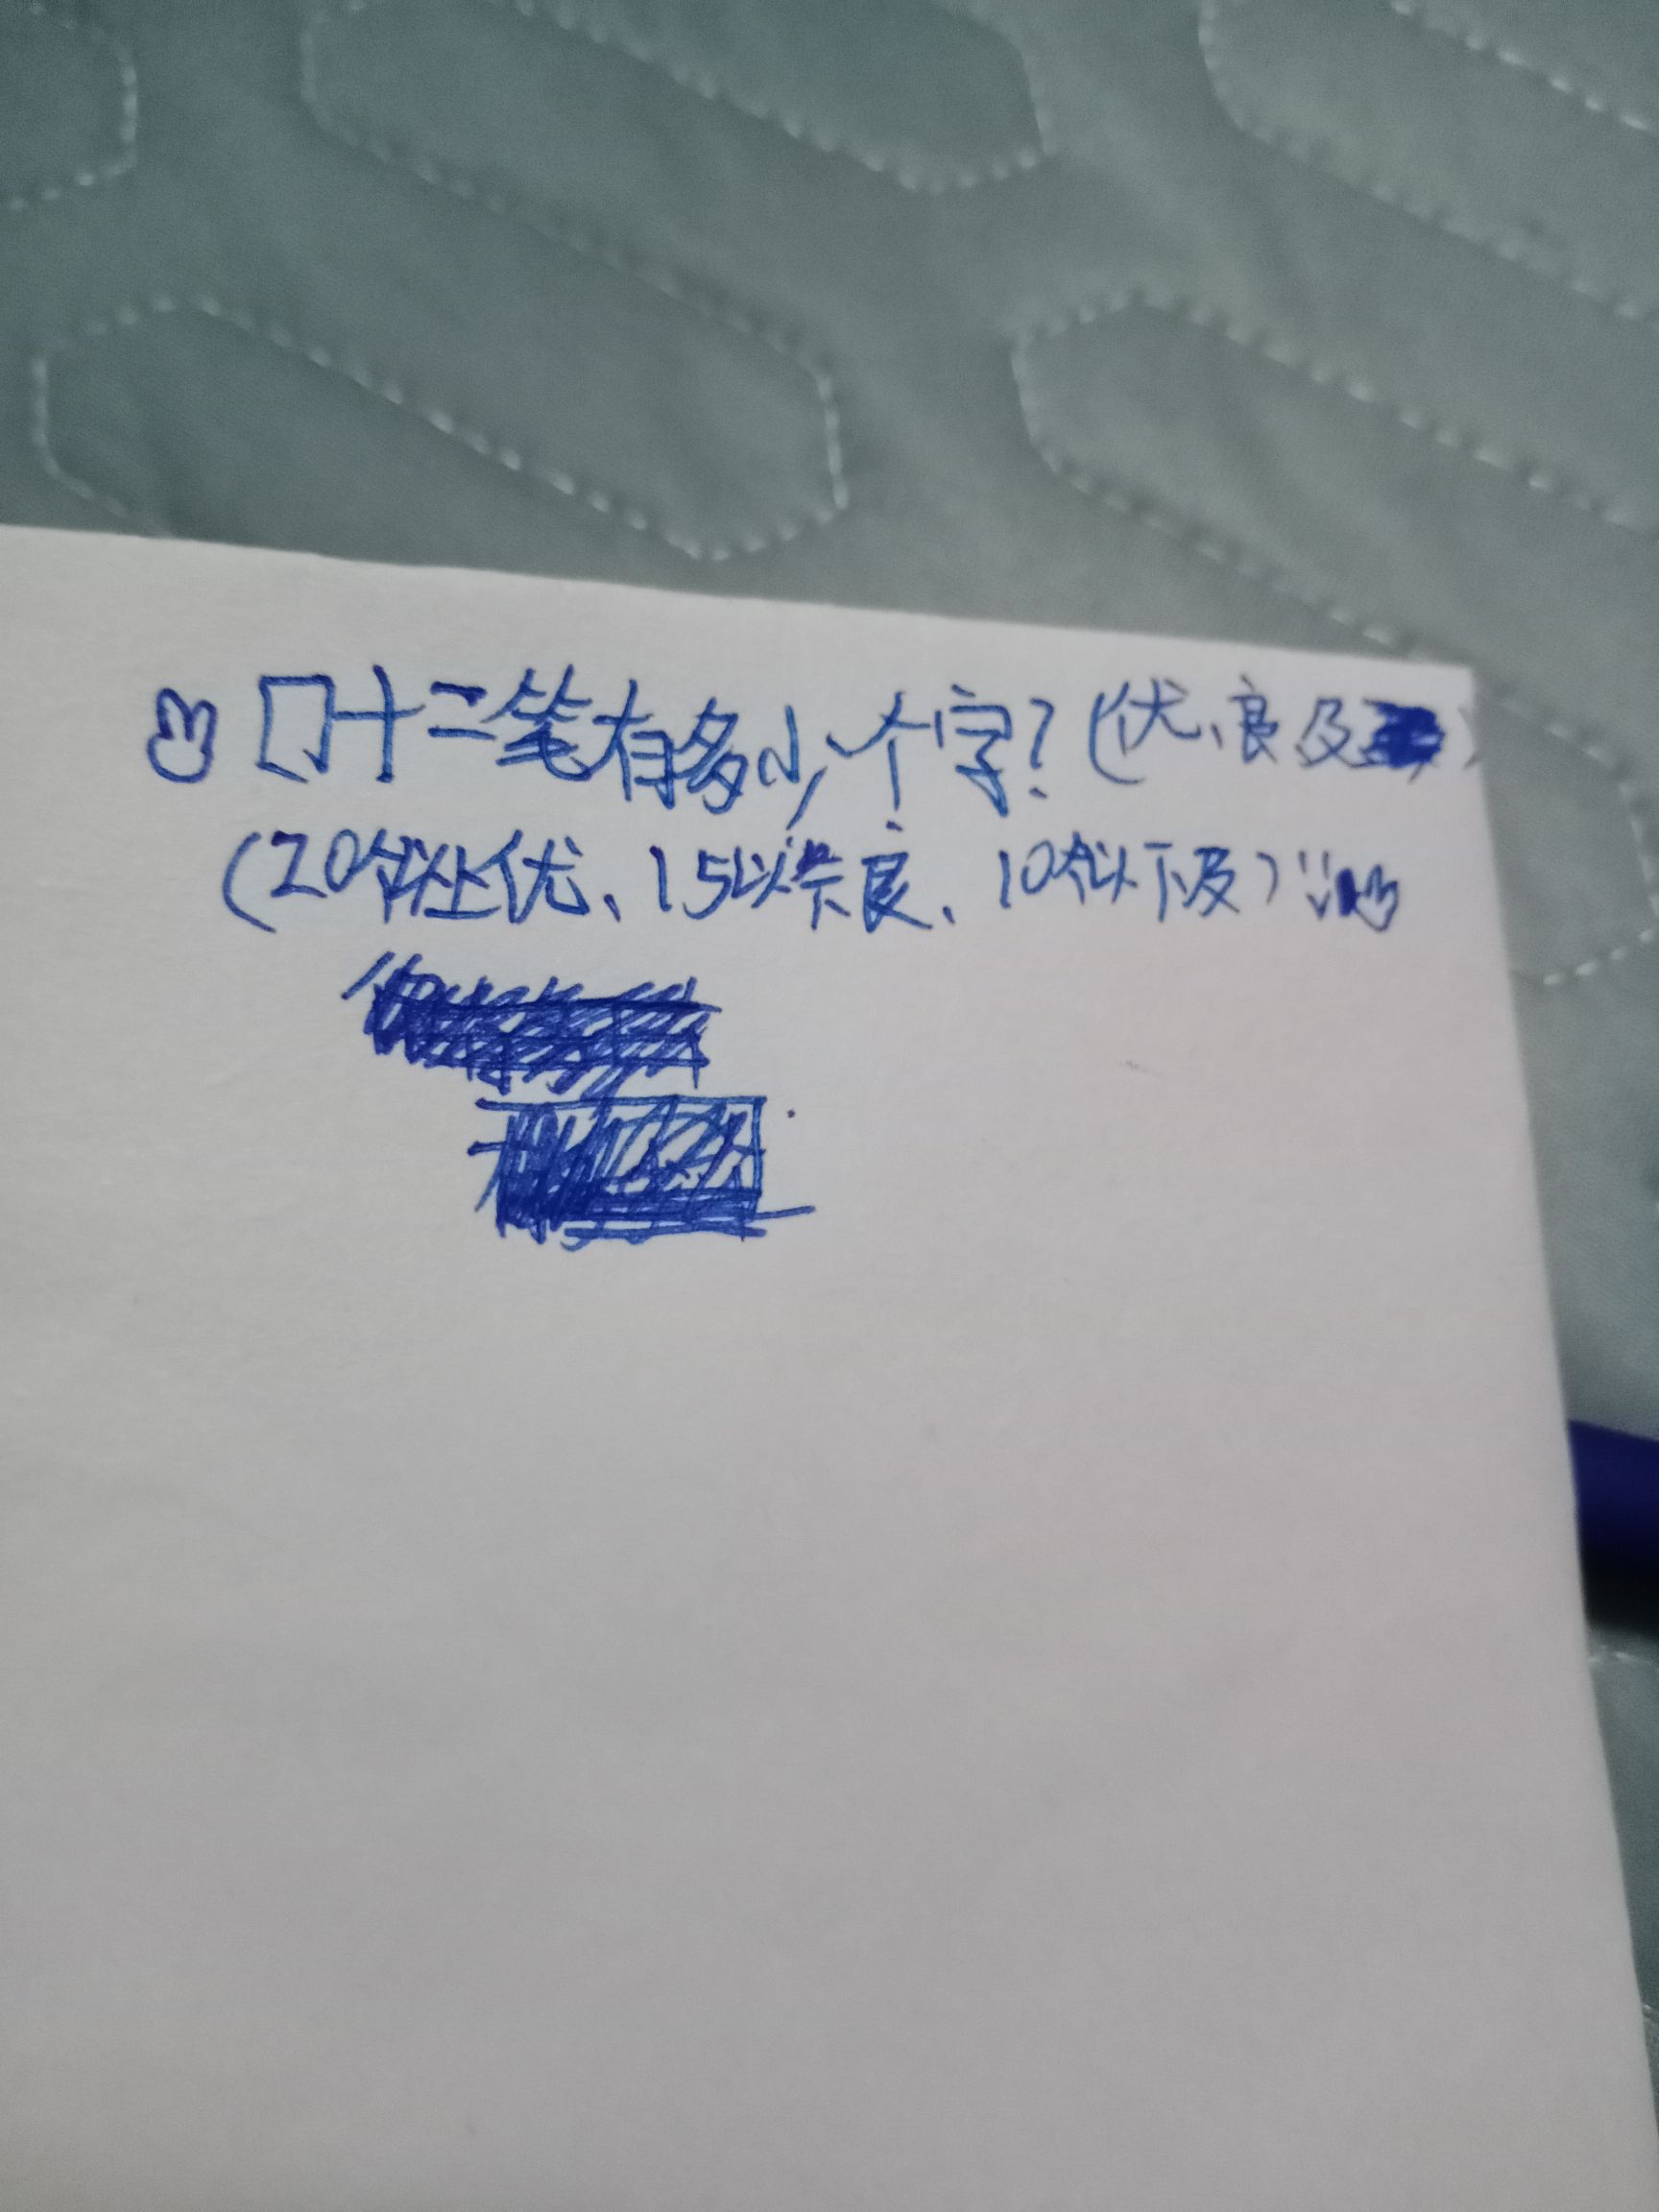 口十二笔有多少个字?(优、良及)
(20个以上优、15以上良、10个以下及)